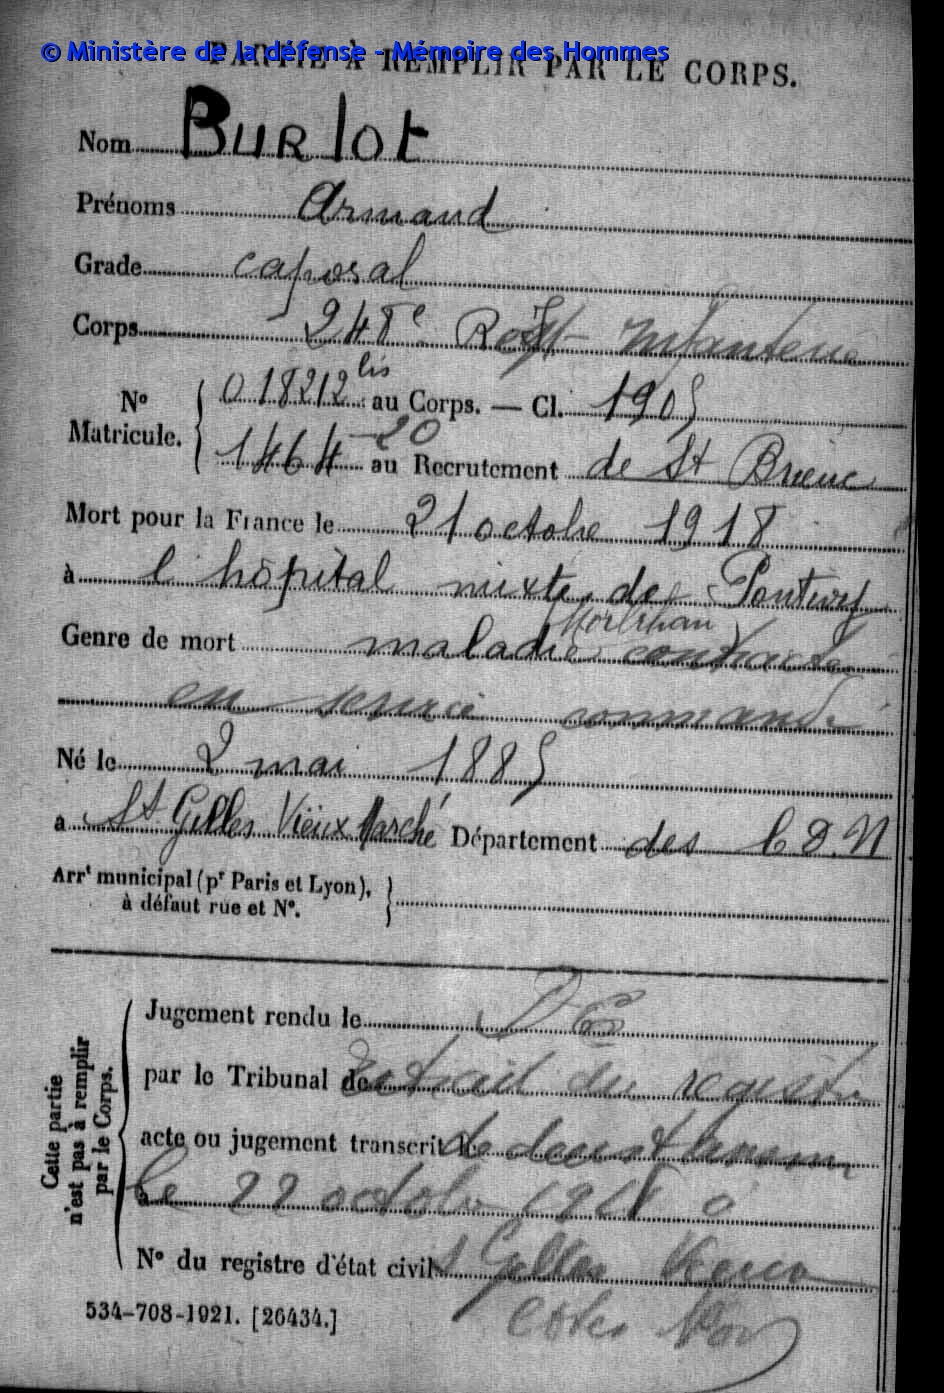 © Ministère de la défense - Mémoire des Hommes
PARTIE À REMPLIR PAR LE CORPS.
Nom Burlot
Prénoms Armand
Grade caporal
Corps 248e Regt Infanterie
No Matricule. 018212 bis au Corps. — Cl. 1905
1464 - 20 au Recrutement de St Brieuc
Mort pour la France le 21 octobre 1918
à l'hôpital mixte de Pontivy
Morbihan
Genre de mort maladie contractée
en service commandé
Né le 2 mai 1885
a St Gilles Vieux Marché Département des C D. N
Arrt municipal (pr Paris et Lyon),
à défaut rue et No.
Cette partie
n'est pas à remplir
par le Corps.
Jugement rendu le
par le Tribunal de Extrait du registre
acte ou jugement transcrit le de
le 22 octobre 1918 à
No du registre d'état civil St Gilles Vieux
Cotes Nord
534-708-1921. [26434.]